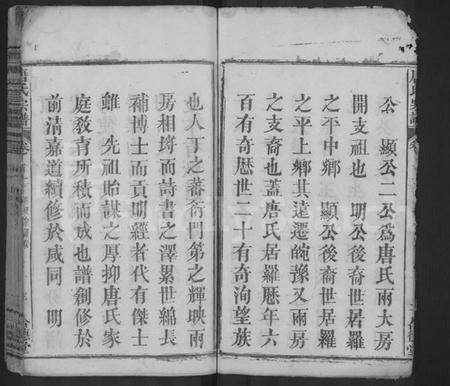 公 顯公二公爲唐氏兩大房
開支祖也 明公後裔世居羅
之平中鄉 顯公後裔世居羅
之平上鄉其遠遷皖豫又兩房
之支裔也蓋唐氏居羅歷年六
百有奇歷世二十有奇洵望族
也人丁之蕃衛門第之輝映兩
房相埒而詩書之澤累世綿長
補博士而貢明經者代有傑士
雖 先祖貽謀之厚抑唐氏家
庭敎育所積而成也譜創修於
前清嘉道續修於咸同 明
唐氏宗譜
卷